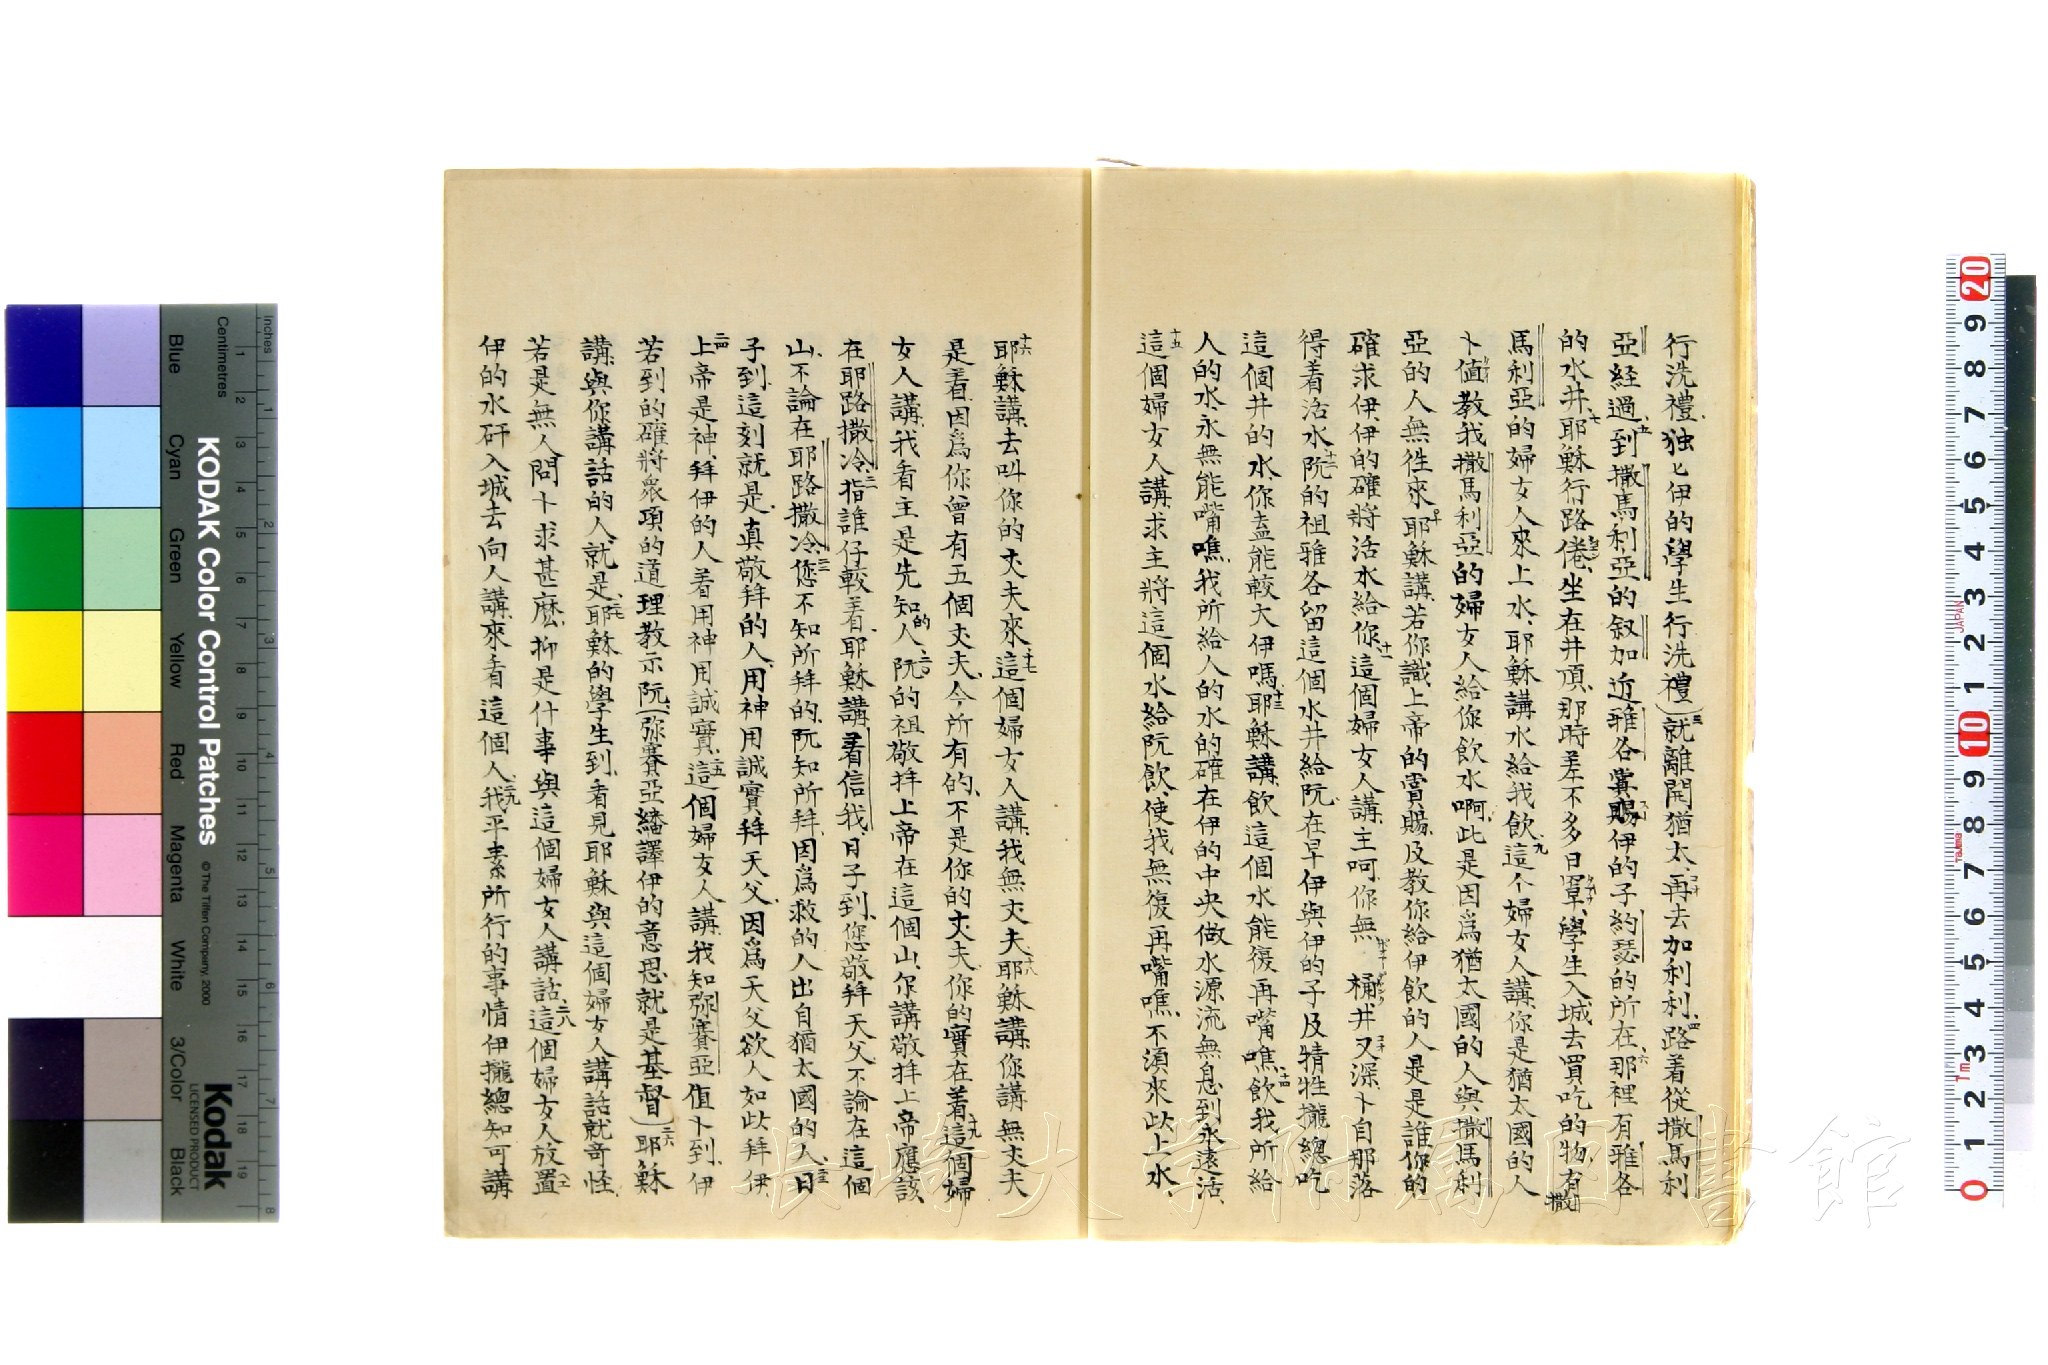 行洗禮、独匕伊的學生行洗禮)三就離開猶太、再去加利利、四路着從撒馬利
亞経過、五到撒馬利亞的叙加近雅各賞賜伊的子約瑟的所在、六那裡有雅各
的水井、七耶穌行路倦、坐在井頂、那時差不多日罩、學生入城去買吃的物、有撒
馬利亞的婦女人來上水、耶穌講水給我飲、九這个婦女人講、你是猶太國的人
卜值教我撒馬利亞的婦女人給你飲水啊、此是因爲猶太國的人與撒馬利
亞的人無徃來、十耶穌講、若你識上帝的賞賜、及教你給伊飲的人是是誰、你的
確求伊、伊的確將活水給你、十一這個婦女人講、主呵、你無 桶、井又深、卜自那落
得着活水、十二阮的祖雅各留這個水井給阮、在早伊與伊的子及犗牲攏總吃
這個井的水、你盍能較大伊嗎、十三耶穌講、飲這個水能復再嘴噍、十四飲我所給
人的水、永無能嘴噍、我所給人的水的確在伊的中央做水源流無息到永遠活、
十五這個婦女人講、求主將這個水給阮飲、使我無復再嘴噍、不須來此上水、
十六耶穌講、去叫你的丈夫來、十七這個婦女人講、我無丈夫、十八耶穌講、你講無丈夫
是着、因爲你曾有五個丈夫、今所有的、不是你的丈夫、你的實在着、十九這個婦
女人講、我看主是先知的人、二十阮的祖敬拜上帝在這個山、你講敬拜上帝應該
在耶路撒冷、指誰仔較着、耶穌講、着信我、日子到、您敬拜天父不論在這個
山、不論在耶路撒冷、您不知所拜的、阮知所拜、因爲救的人出自猶太國的人、日
子到、這刻就是、真敬拜的人、用神用誠實、拜天父、因爲天父欲人如此拜伊、
二四上帝是神、拜伊的人着用神用誠實、二五這個婦女人講、我知弥賽亞值卜到、伊
若到的確將衆項的道理教示阮、(弥賽亞繙譯伊的意思就是基督)二六耶穌
講、與你講話的人就是、二七耶穌的學生到、看見耶穌與這個婦女人講話就奇怪、
若是無人問卜求甚麽、抑是什事與這個婦女人講話、二八這個婦女人放置
伊的水矸、入城去向人講、來看這個人、二九我平素所行的事情伊攏總知可講
長崎大学附属図書館
KODAK Color Control Patches
© The Tiffen Company, 2000
Kodak
LICENSED PRODUCT
Inches
Centimetres
Blue
Cyan
Green
Yellow
Red
Magenta
White
3/Color
Black